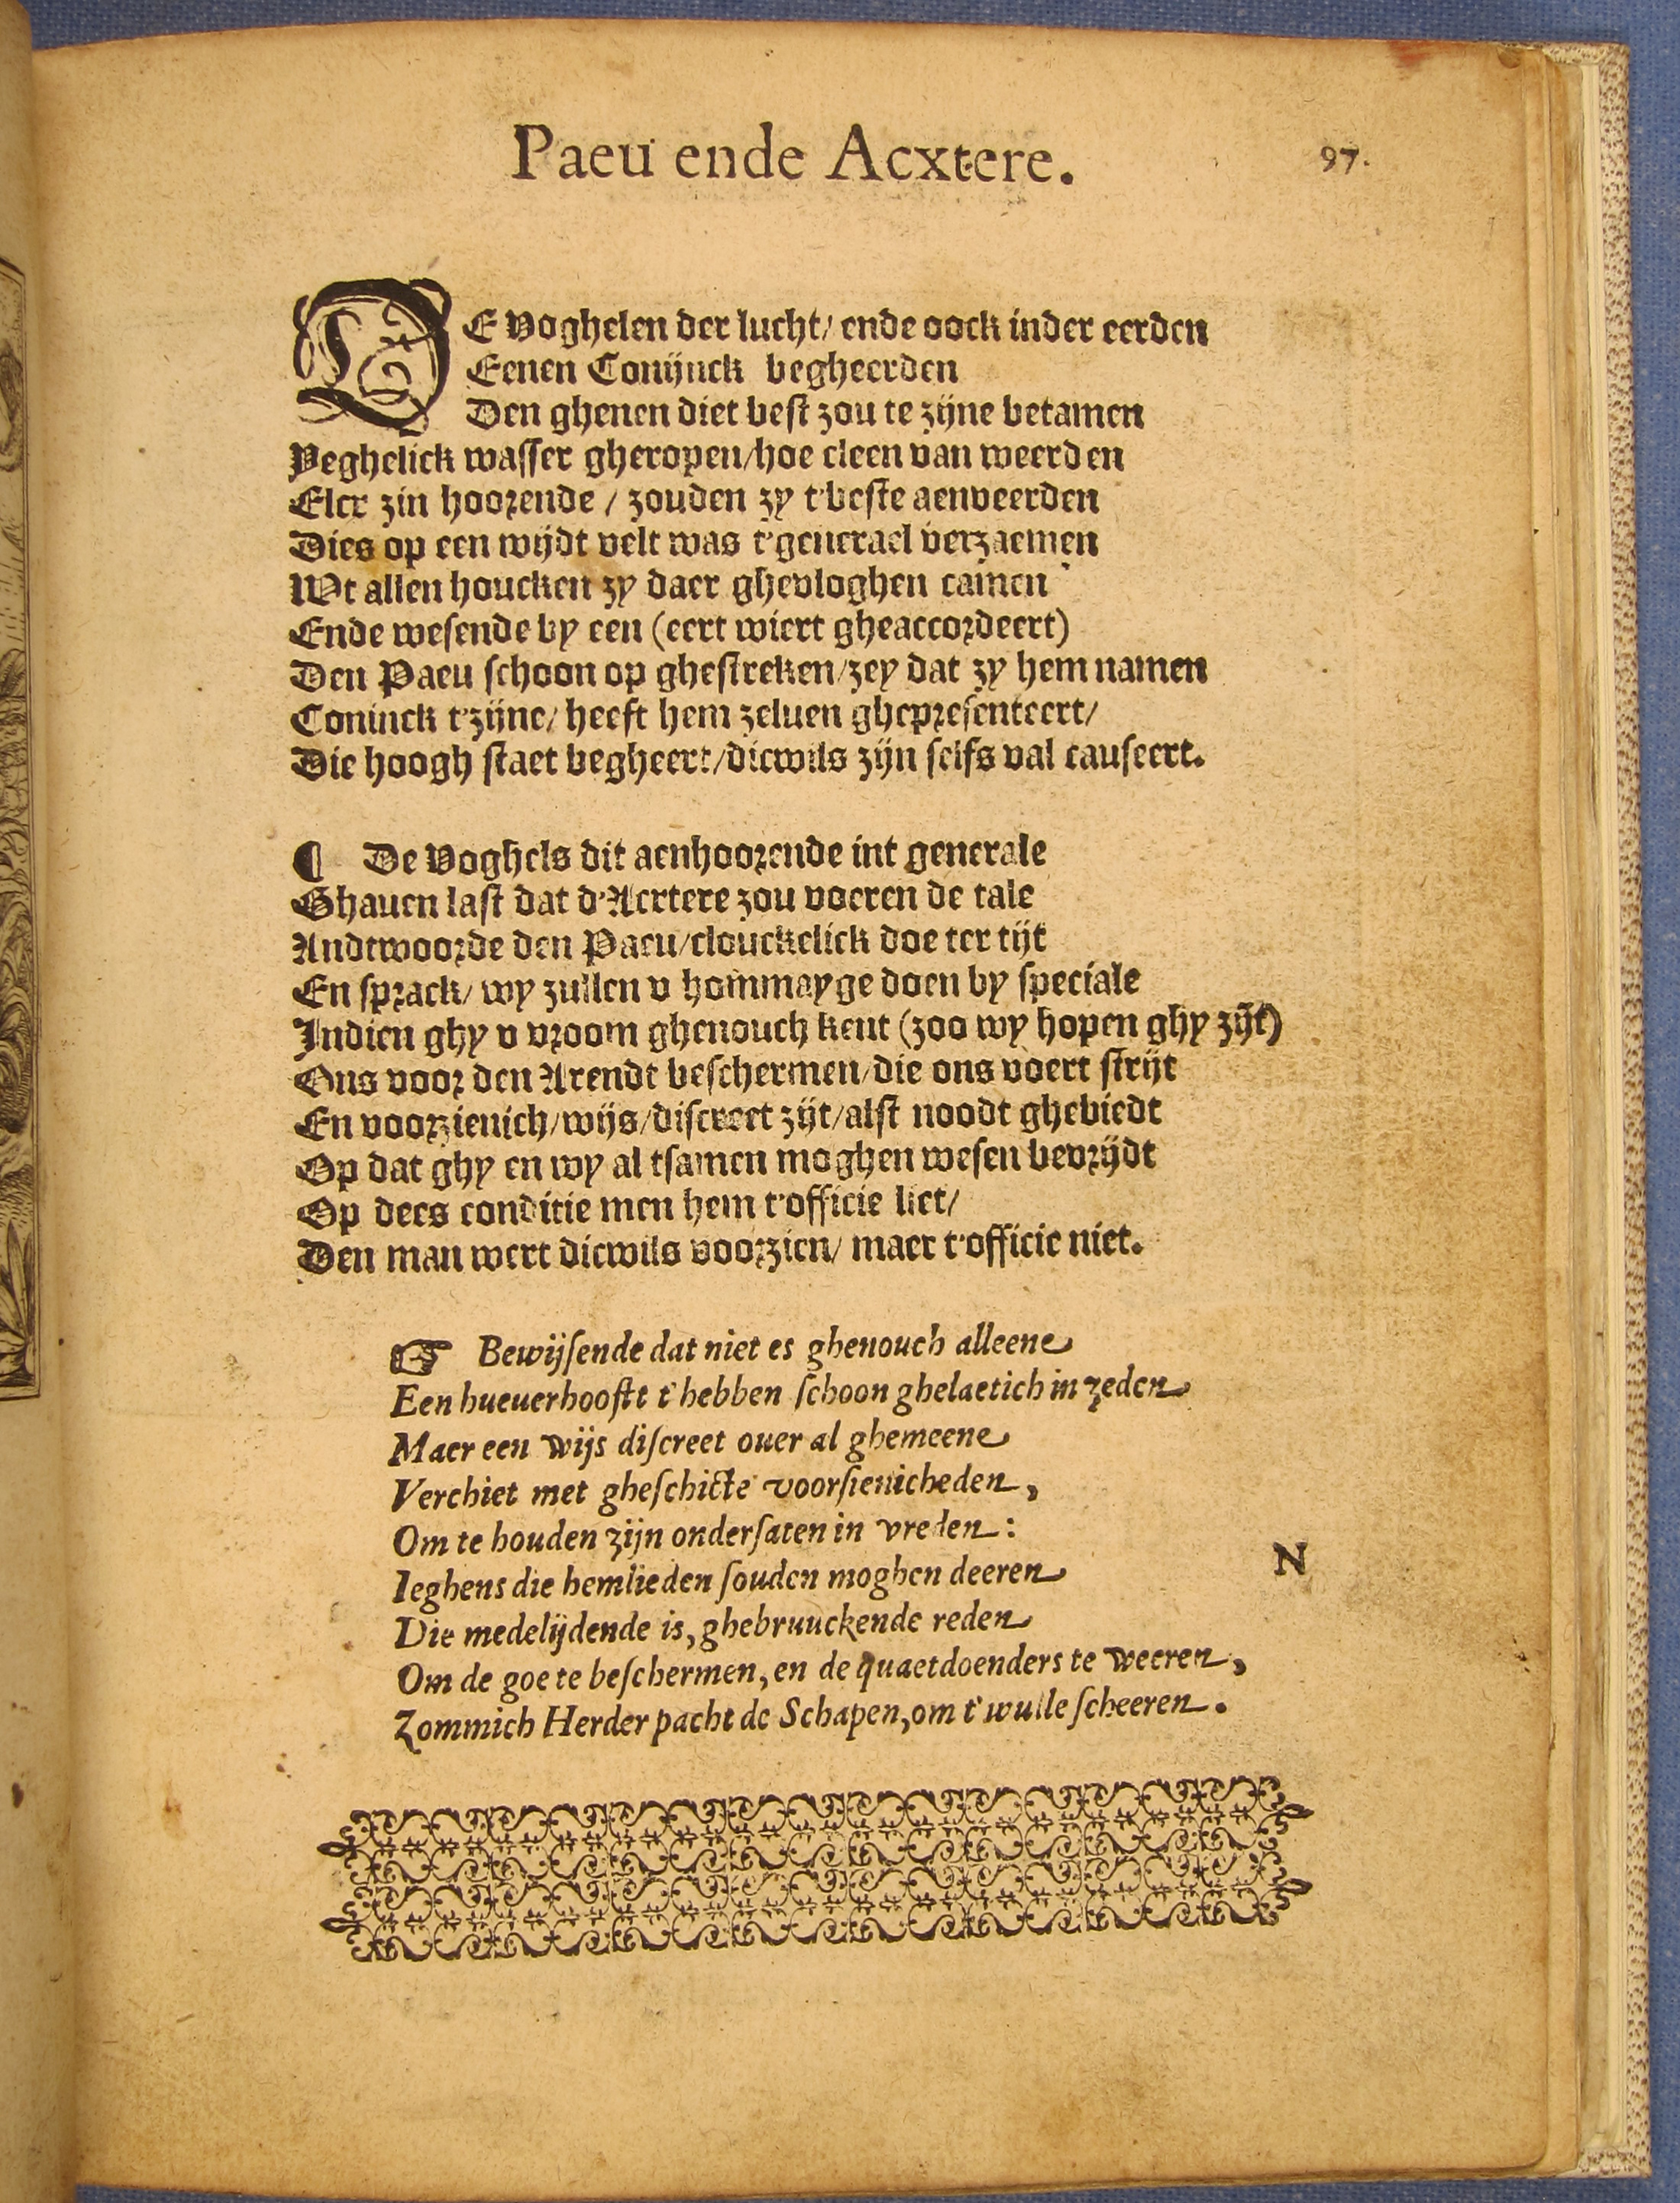 Paeu ende Acxtere.
97.
DE voghelen der lucht/ ende oock inder eerden
Eenen Conijnck begheerden
Den ghenen diet best zou te zijne betamen
Yeghelick wasser gheropen/hoe cleen van weerden
Elcx zin hoorende / zouden zy t'beste aenveerden
Dies op een wijdt velt was t'generael verzaemen
Wt allen houcken zy daer ghevloghen camen
Ende wesende by een (eert wiert gheaccordeert)
Den Paeu schoon op ghestreken/zey dat zy hem namen
Coninck t'zijne/ heeft hem zeluen ghepresenteert/
Die hoogh staet begheert/dicwils zijn selfs val causeert.
¶ De voghels dit aenhoorende int generale
Ghauen last dat d'Acxtere zou voeren de tale
Andtwoorde den Paeu/clouckelick doe ter tijt
En sprack/ wy zullen v hommayge doen by speciale
Indien ghy v vroom ghenouch kent (zoo wy hopen ghy zijt)
Ons voor den Arendt beschermen/die ons voert strijt
En voorzienich/wijs/discreet zijt/alst noodt ghebiedt
Op dat ghy en wy al tsamen moghen wesen bevrijdt
Op dees conditie men hem t'officie liet/
Den man wert dicwils voorzien/ maer t'officie niet.
☞ Bewijsende dat niet es ghenouch alleene
Een hueuerhooft t'hebben schoon ghelaetich in zeden
Maer een wijs discreet ouer al ghemeene
Verchiet met gheschicte voorsienicheden,
Om te houden zijn ondersaten in vreden:
Ieghens die hemlieden souden moghen deeren
Die medelijdende is, ghebruuckende reden
Om de goe te beschermen, en de quaetdoenders te weeren,
Zommich Herder pacht de Schapen, om t'wulle scheeren.
N